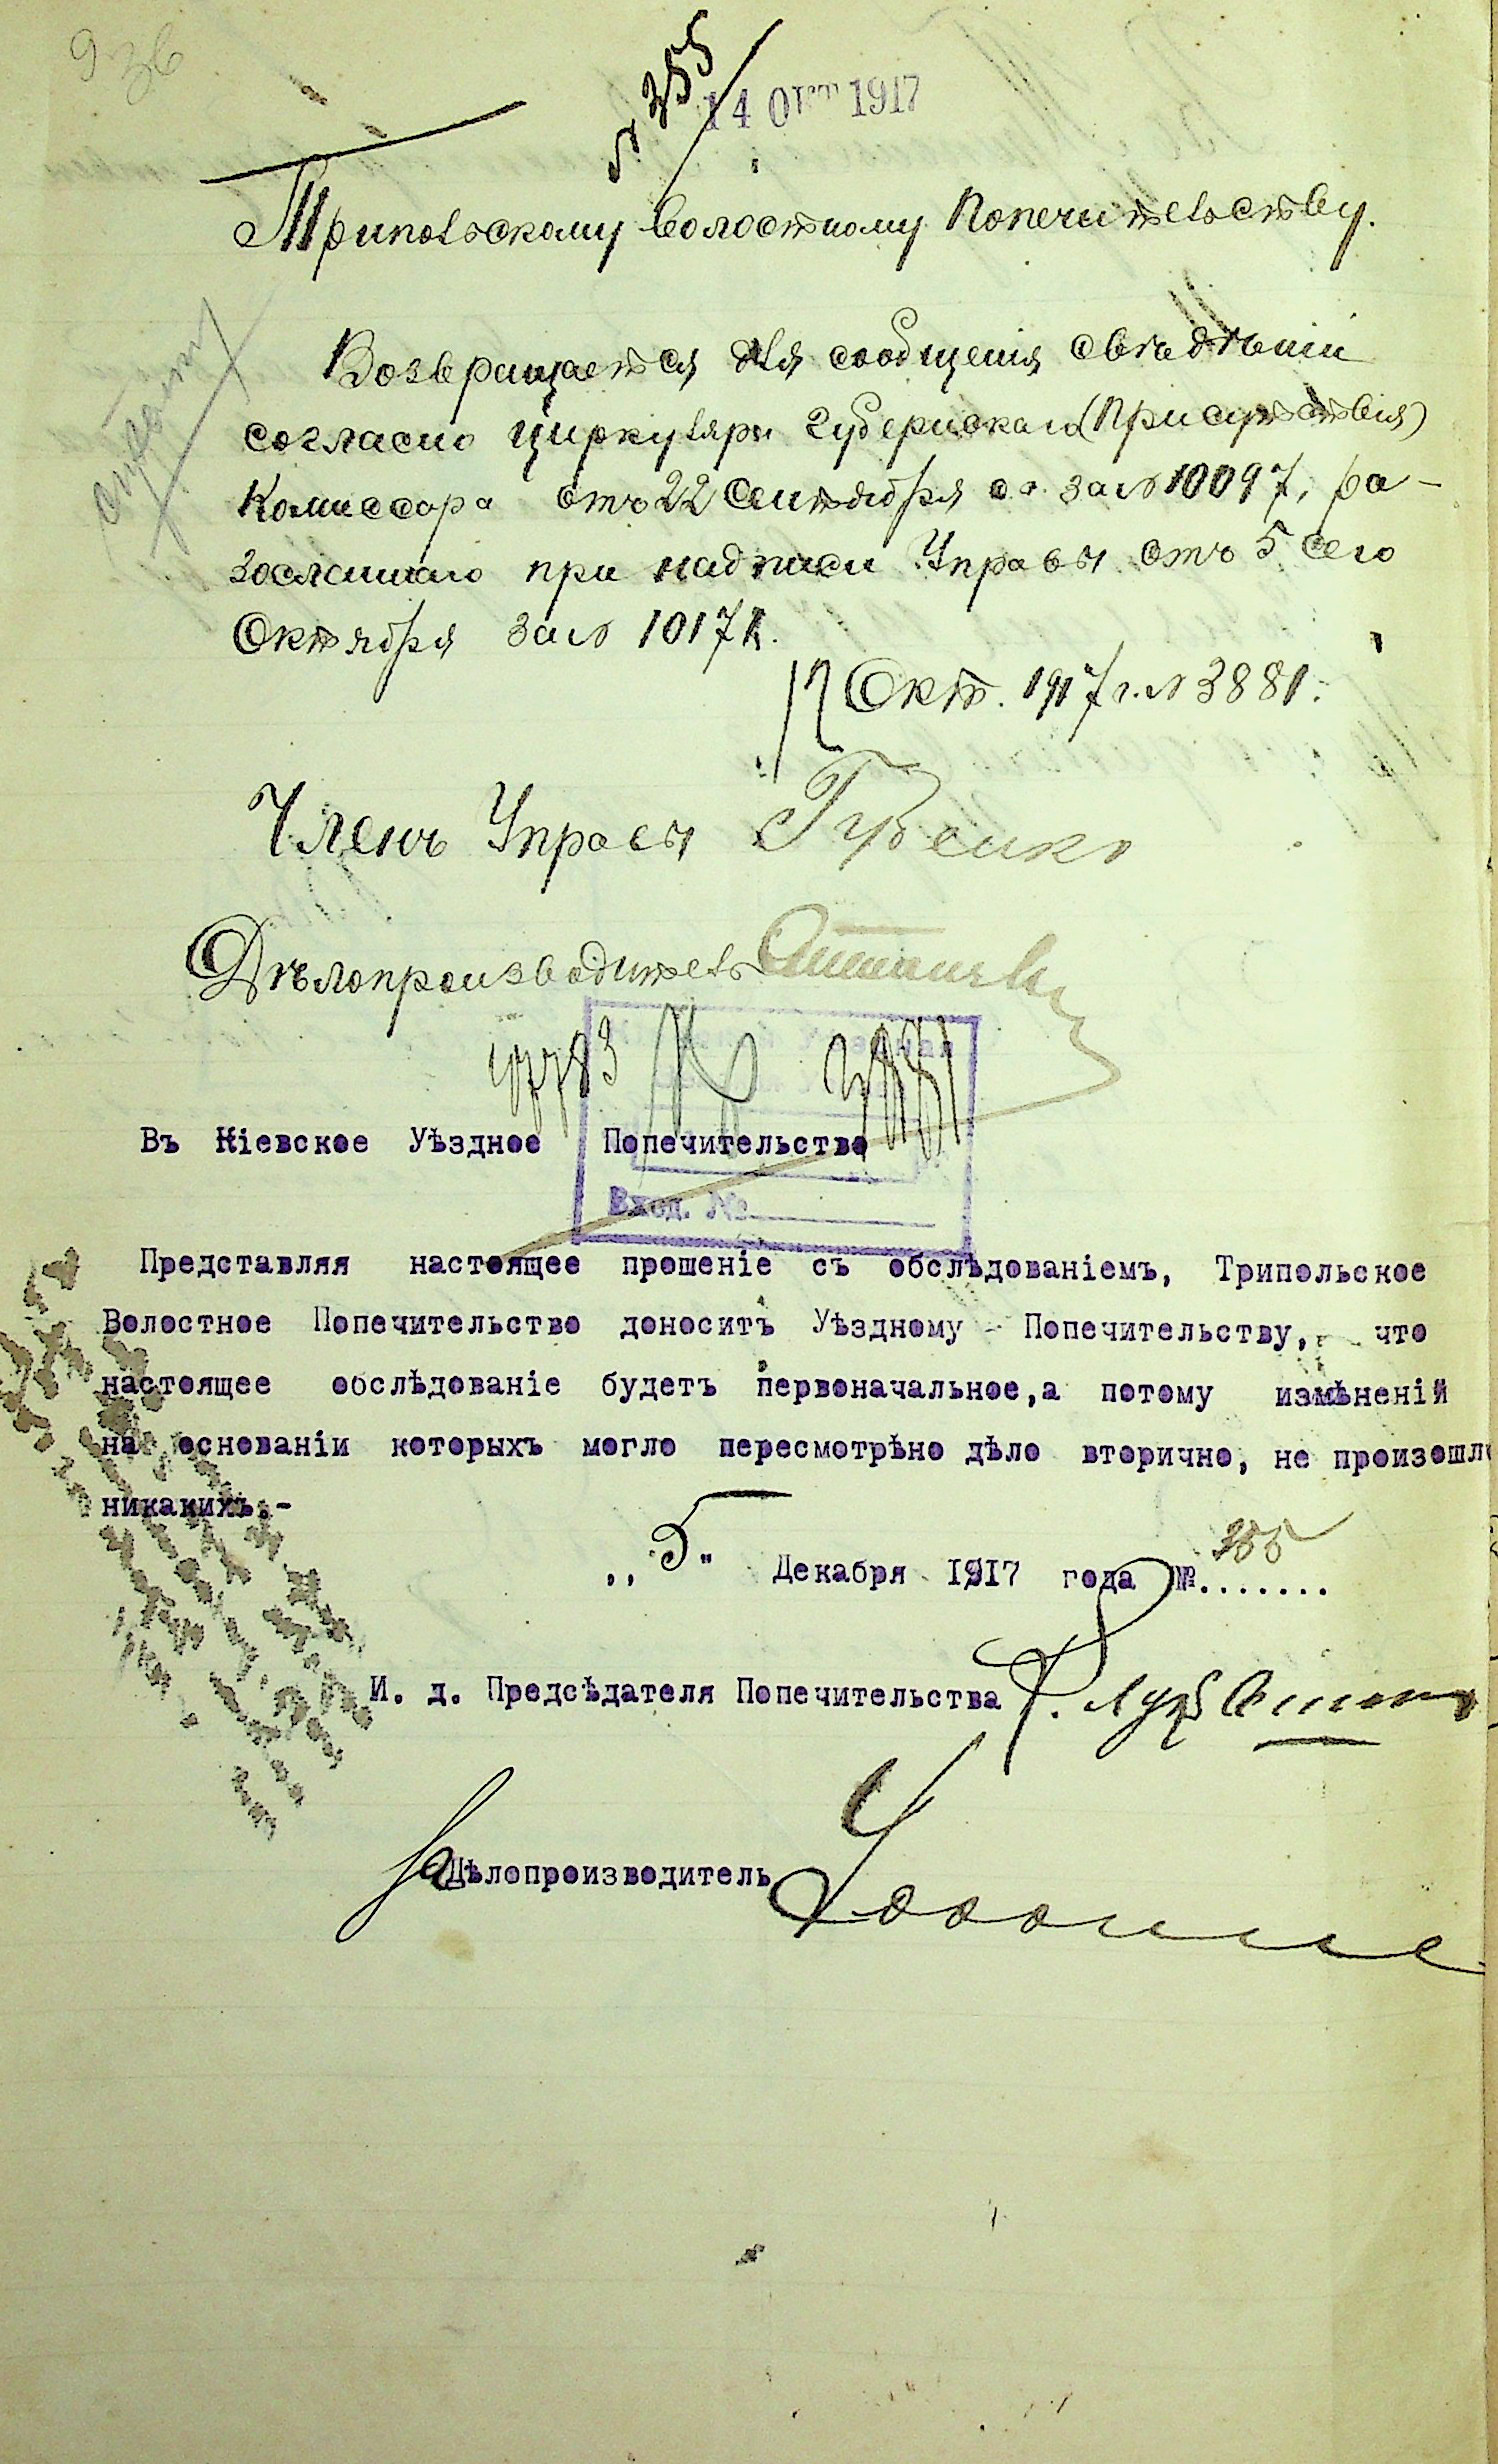 936
№ 355
14 ОКТ 1917
Трипольскому Волостному Попечительству.
Возвращается для сообщенія свѣдѣній
согласно циркуляра Губернскаго (Присутствія)
Комиссара отъ 22 Сентября с.г. за № 10097, ра-
зосланнаго при надписи Управы отъ 5 сего
Октября за № 10171.
12 Окт. 1917 г. № 3881.
Членъ Управы Губенко
Дѣлопроизводитель
3881
Въ Кіевское Уѣздное Попечительство
Вход. №
Представляя настоящее прошеніе съ обслѣдованіемъ, Трипольское
Волостное Попечительство доноситъ Уѣздному Попечительству, что
настоящее обслѣдованіе будетъ первоначальное, а потому измѣненій
на основаніи которыхъ могло пересмотрѣно дѣло вторично, не произошло
никакихъ.-
„5" Декабря 1917 года №....... 355
И. д. Предсѣдателя Попечительства
За Дѣлопроизводитель